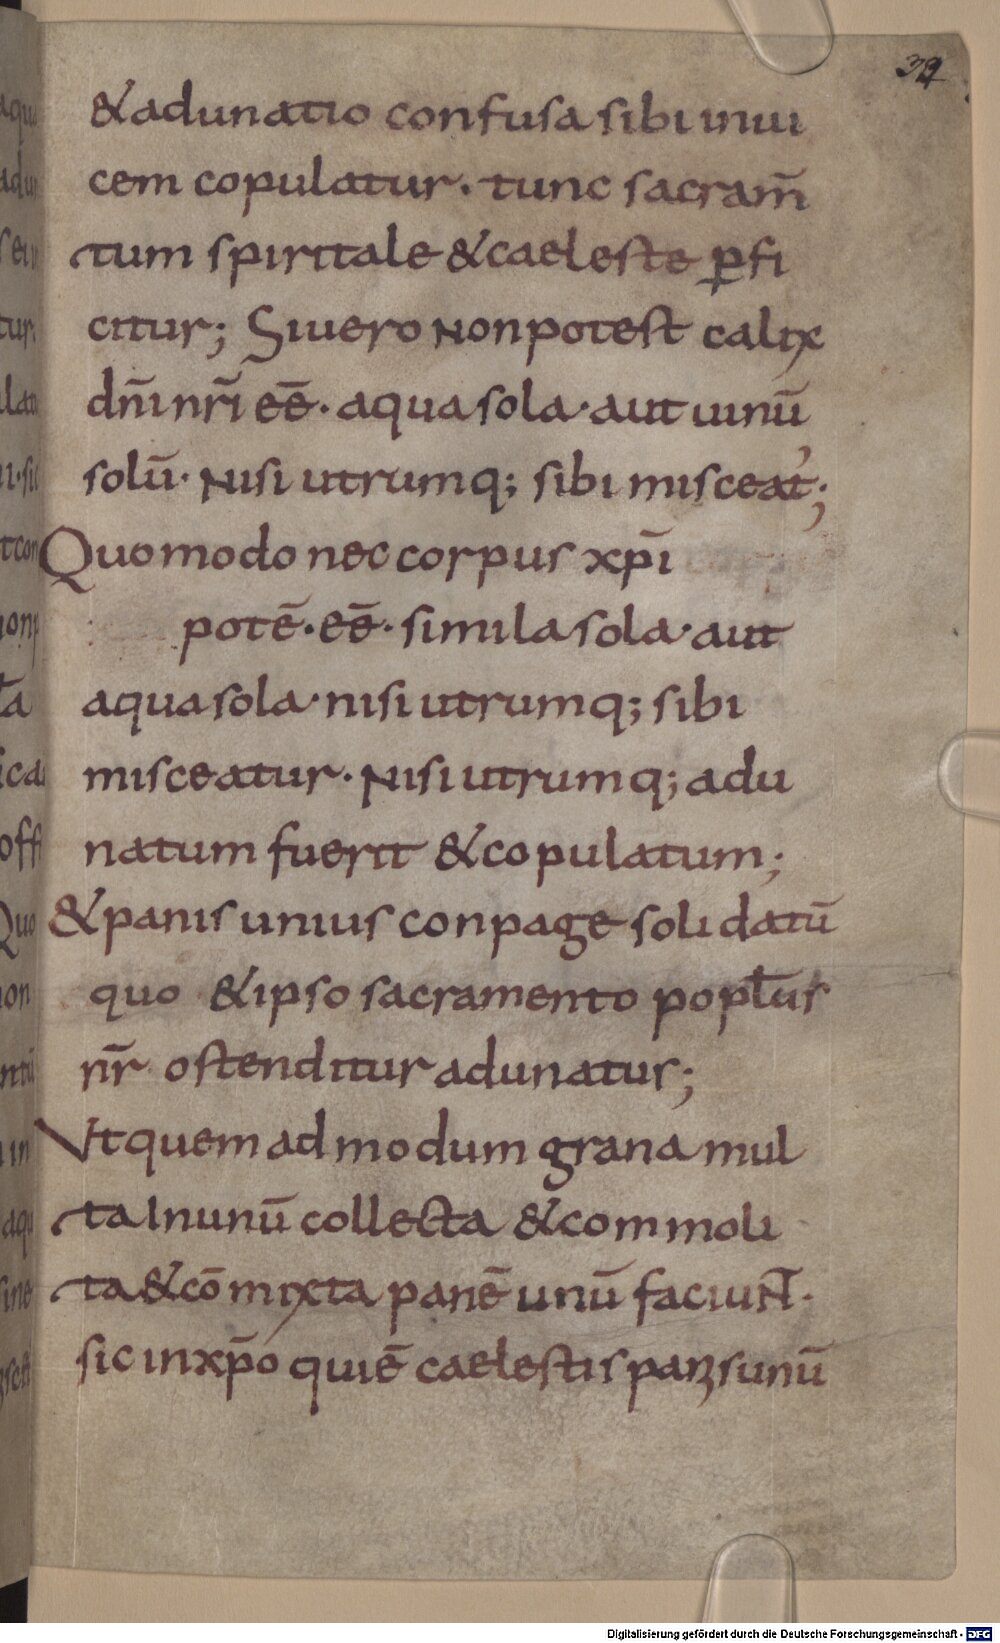 39
&adunatio confusa sibi inui
cem copulatur. tunc sacram̄
tum spiritale &caeleste ꝑfi
citur; Siuero Nonpotest calix
dn̄i nr̄i eē. aqua sola. aut uinū
solū. Nisi utrumq; sibi misceat᾽;
Quomodo nec corpus xp̄i
potē. eē. simila sola. aut
aqua sola. nisi utrumq; sibi
misceatur. Nisi utrumq; adu
natum fuerit &copulatum;
&panis unius conpage solidatū
quo &ipso sacramento popl̄us
nr̄ ostenditur adunatus;
Vtquem ad modum grana mul
ta Inunū collecta &commoli
ta &cōmixta panē unū faciuNT.
sic inxp̄o quiē caelestis panis unū
Digitalisierung gefördert durch die Deutsche Forschungsgemeinschaft - DFG